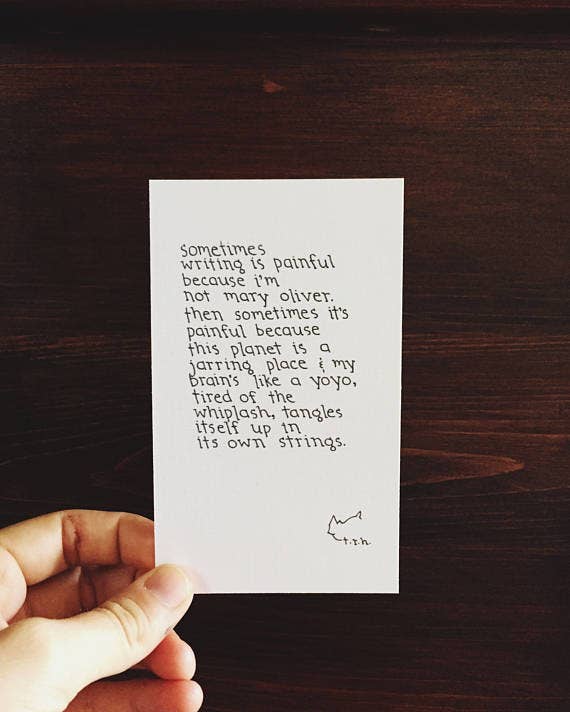 sometimes
writing is painful
because i'm
not mary oliver.
then sometimes it's
painful because
this planet is a
jarring place & my
brain's like a yoyo,
tired of the
whiplash, tangles
itself up in
its own strings.
t.r.h.